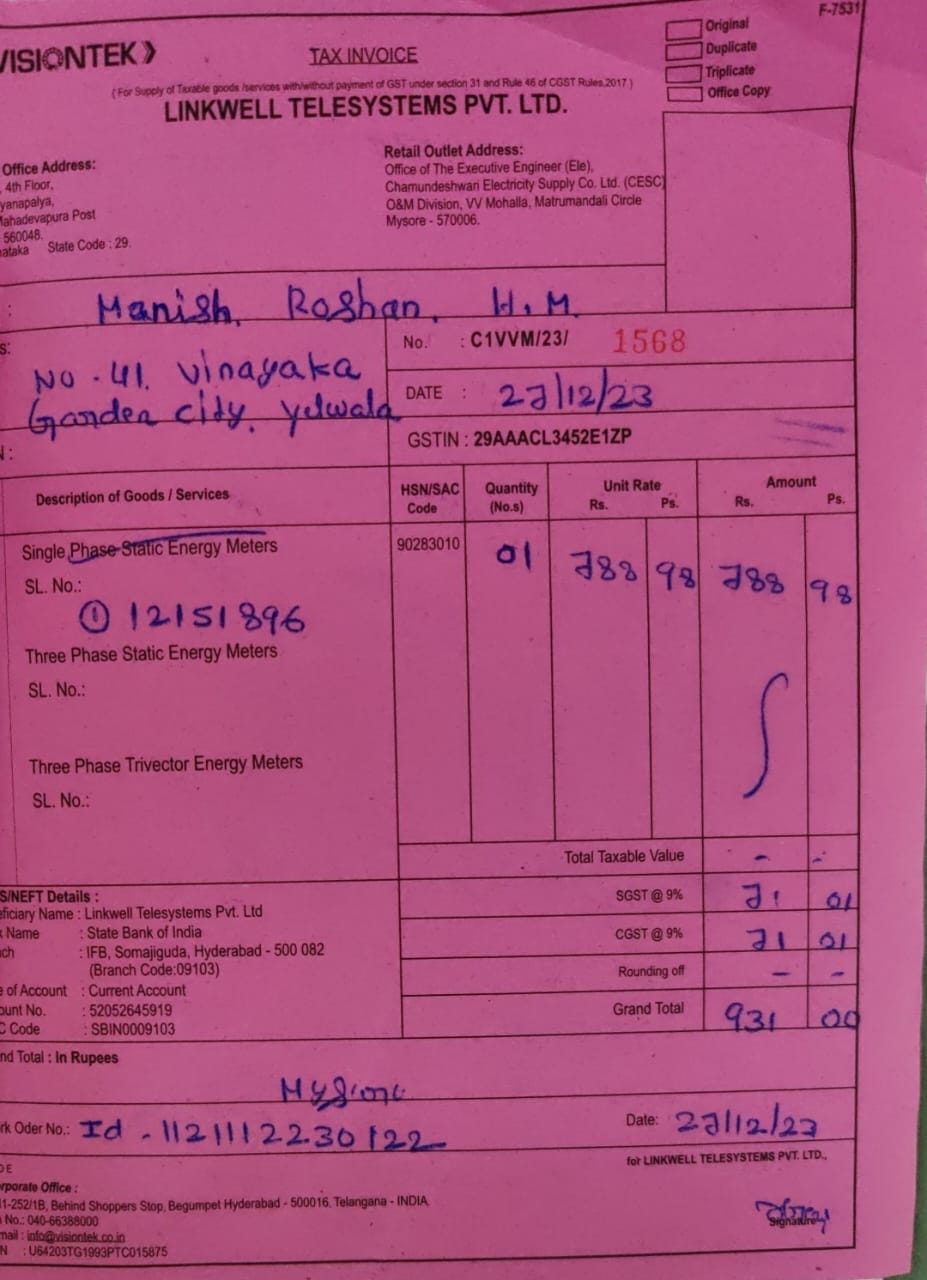 F-7531
VISIONTEK
TAX INVOICE
Original
Duplicate
Triplicate
Office Copy
( For Supply of Taxable goods /services with/without payment of GST under section 31 and Rule 46 of CGST Rules,2017 )
LINKWELL TELESYSTEMS PVT. LTD.
Office Address:
, 4th Floor,
yanapalya,
Mahadevapura Post
560048.
nataka State Code : 29.
Retail Outlet Address:
Office of The Executive Engineer (Ele),
Chamundeshwari Electricity Supply Co. Ltd. (CESC)
O&M Division, VV Mohalla, Matrumandali Circle
Mysore - 570006.
: Manish Roshan. H.M.
s: No - 41. Vinayaka
Garden city, yelwala
N :
No. : C1VVM/23/ 1568
DATE : 27/12/23
GSTIN : 29AAACL3452E1ZP
Description of Goods / Services HSN/SAC Code Quantity (No.s) Unit Rate Rs. Ps. Amount Rs. Ps.
Single Phase Static Energy Meters 90283010 01 788 98 788 98
SL. No.:
① 12151896
Three Phase Static Energy Meters
SL. No.:
Three Phase Trivector Energy Meters
SL. No.:
Total Taxable Value - -
SGST @ 9% 71 01
CGST @ 9% 71 01
Rounding off - -
Grand Total 931 00
S/NEFT Details :
eficiary Name : Linkwell Telesystems Pvt. Ltd
k Name : State Bank of India
nch : IFB, Somajiguda, Hyderabad - 500 082
(Branch Code:09103)
e of Account : Current Account
ount No. : 52052645919
C Code : SBIN0009103
nd Total : In Rupees
rk Oder No.: Id - 1121112230122
Date: 27/12/23
for LINKWELL TELESYSTEMS PVT. LTD.,
DE
rporate Office :
11-252/1B, Behind Shoppers Stop, Begumpet Hyderabad - 500016. Telangana - INDIA
No.: 040-66388000
mail : info@visiontek.co.in
N : U64203TG1993PTC015875
Signature